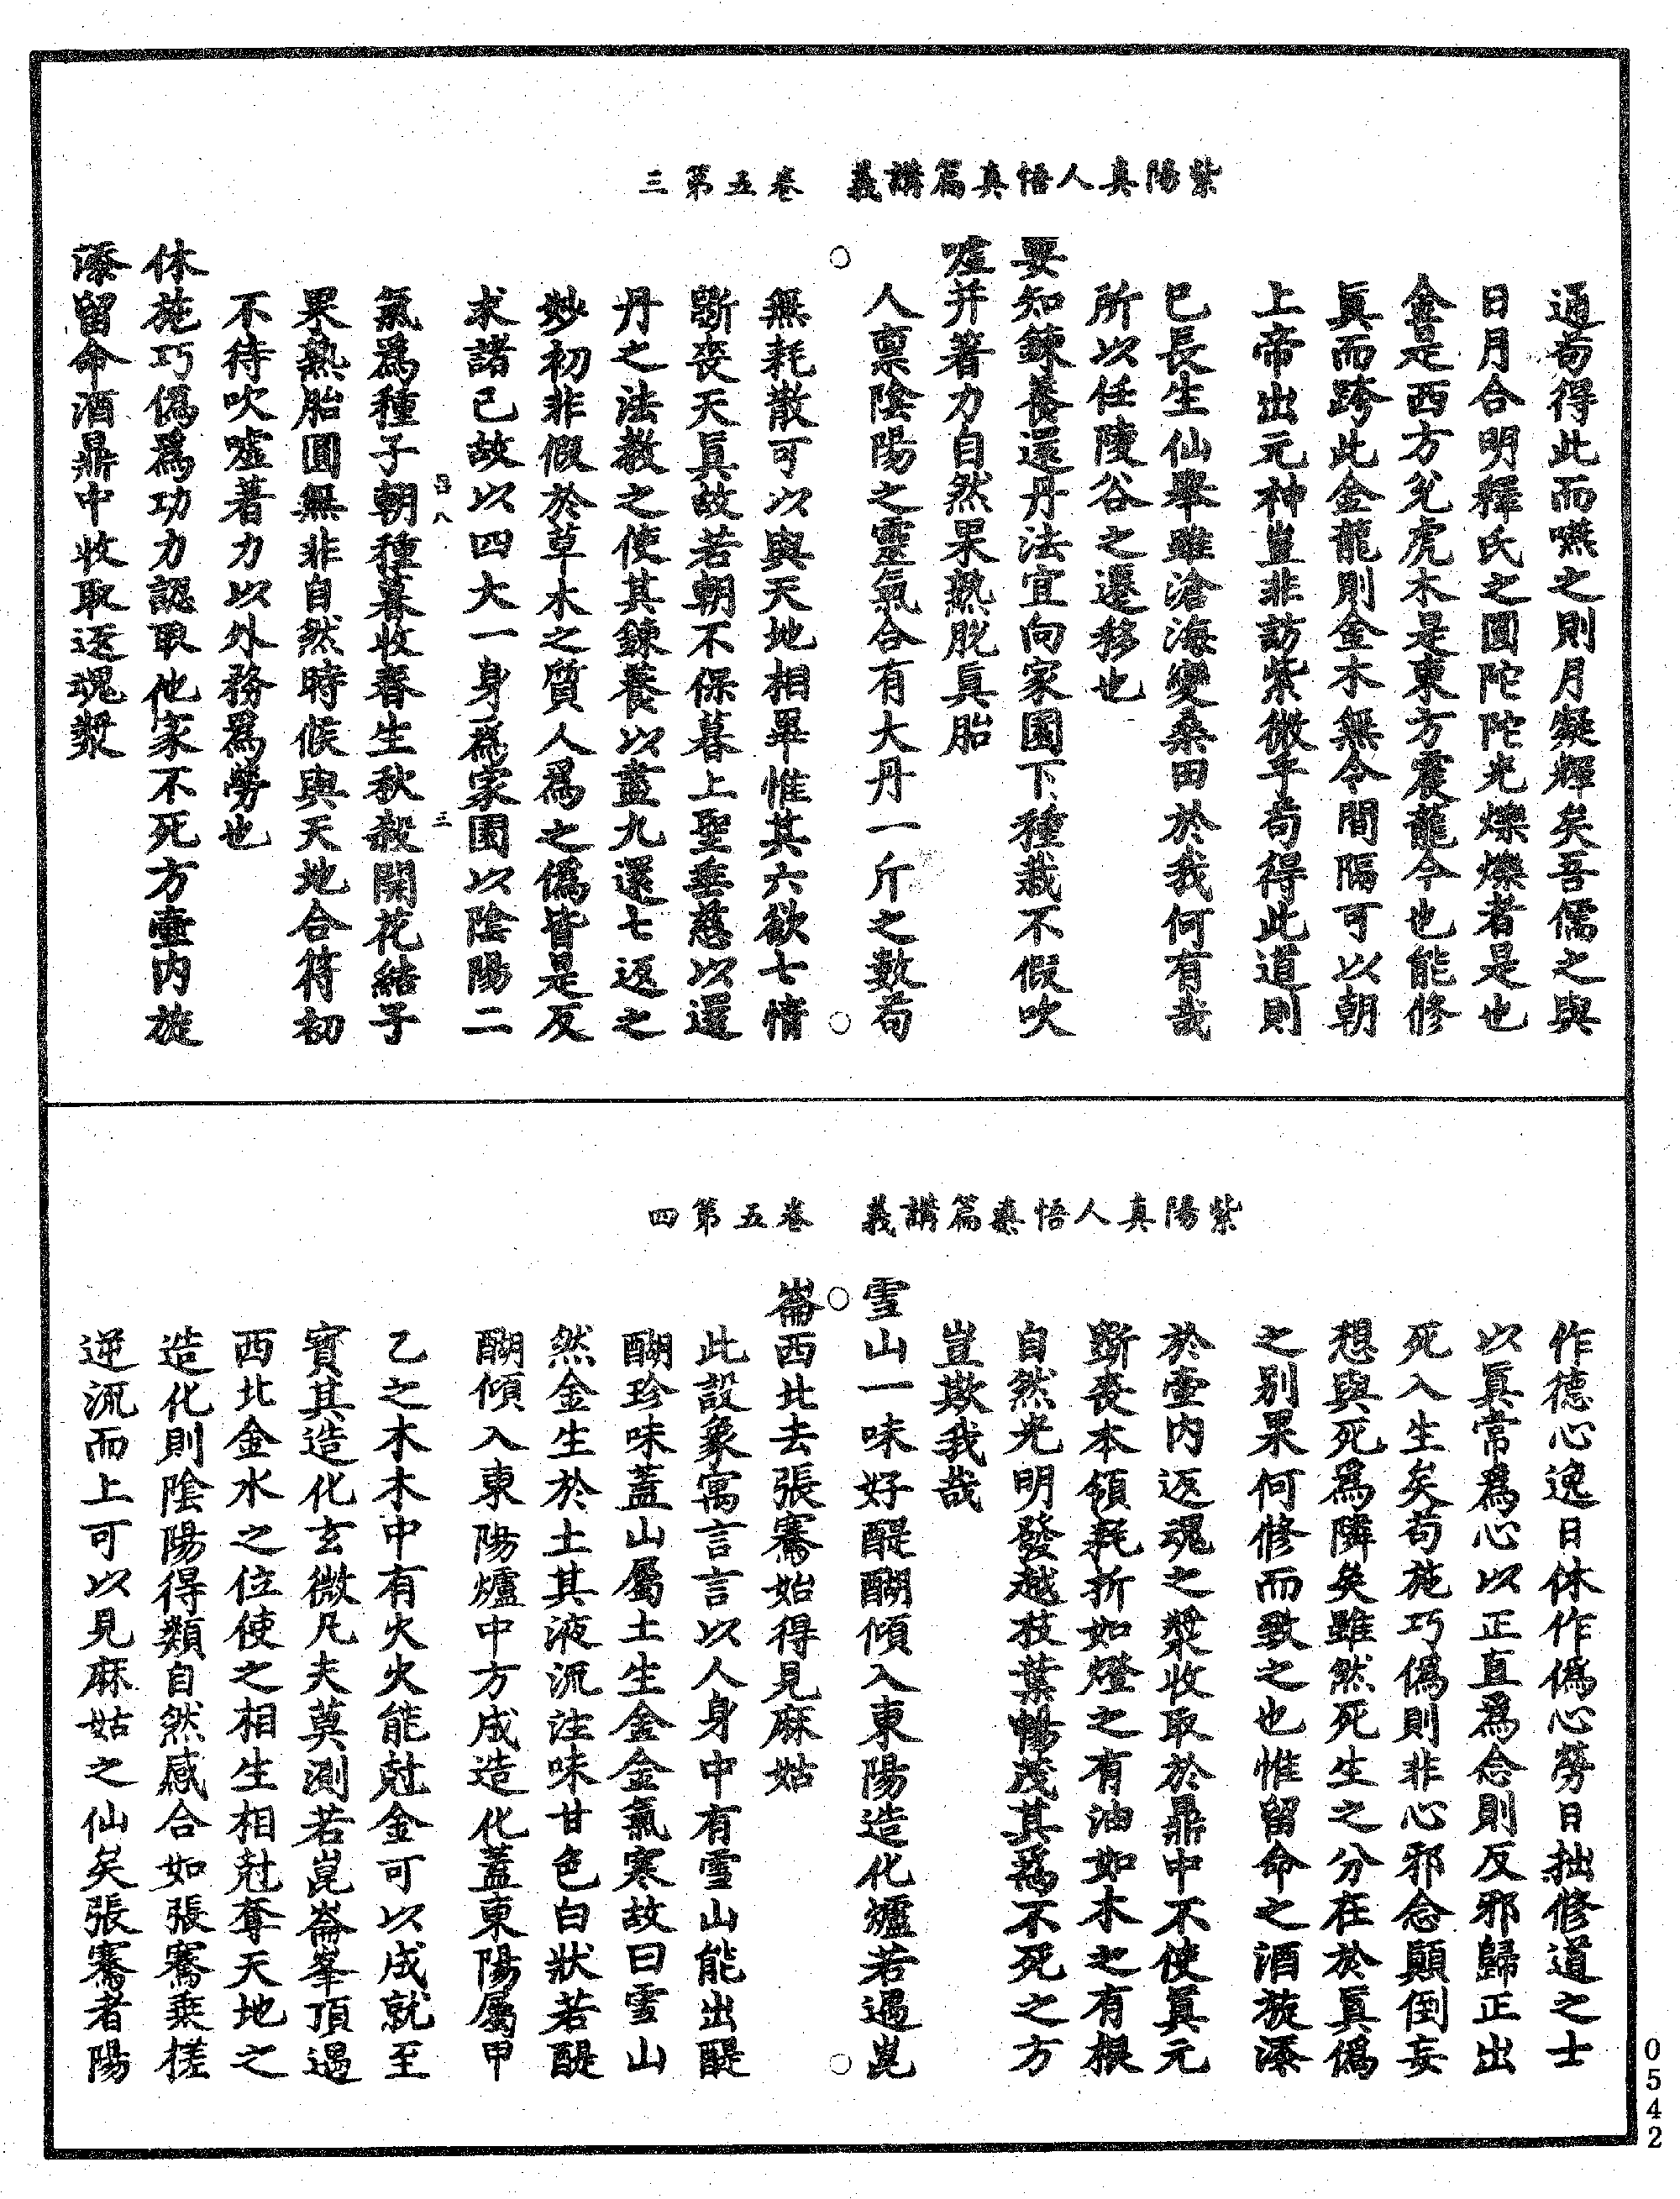 紫陽真人悟真篇講義　卷五第三
通苟得此而嚥之則月凝輝矣吾儒之與
日月合明釋氏之圓陀陀光爍爍者是也
金是西方兌虎木是東方震龍今也能修
眞而跨此金龍則金木無令間隔可以朝
上帝出元神豈非訪紫微乎苟得此道則
已長生仙舉雖滄海變桑田於我何有哉
所以任陵谷之遷移也
要知鍊養還丹法宜向家園下種栽不假吹
噓并著力自然果熟脫眞胎
人禀陰陽之靈氣合有大丹一斤之數苟
無耗散可以與天地相畢惟其六欲七情
斲喪天眞故若朝不保暮上聖垂慈以還
丹之法教之使其鍊養以盡九還七返之
妙初非假於草木之質人爲之僞皆是反
求諸己故以四大一身爲家園以陰陽二
氣爲種子朝種暮收春生秋殺開花結子
果熟胎圓無非自然時候與天地合符初
不待吹噓著力以外務爲勞也
休施巧僞爲功力認取他家不死方壷內旋
添留命酒鼎中收取返魂漿
紫陽真人悟真篇講義　卷五第四
作德心逸日休作僞心勞日拙修道之士
以眞常爲心以正直爲念則反邪歸正出
死入生矣苟施巧僞則非心邪念顚倒妄
想與死爲隣矣雖然死生之分在於眞僞
之别果何修而致之也惟留命之酒旋添
於壷內返魂之漿收取於鼎中不使眞元
斲喪本領耗折如燈之有油如木之有根
自然光明發越枝葉暢茂其爲不死之方
豈欺我哉
雪山一味好醍醐傾入東陽造化爐若過崑
崙西北去張騫始得見麻姑
此設象寓言言以人身中有雪山能出醍
醐珍味蓋山屬土生金金氣寒故曰雪山
然金生於土其液流注味甘色白狀若醍
醐傾入東陽爐中方成造化蓋東陽屬甲
乙之木木中有火火能尅金可以成就至
寳其造化玄微凡夫莫測若崑崙峯頂過
西北金水之位使之相生相尅奪天地之
造化則陰陽得類自然感合如張騫乘槎
逆流而上可以見麻姑之仙矣張騫者陽
0542